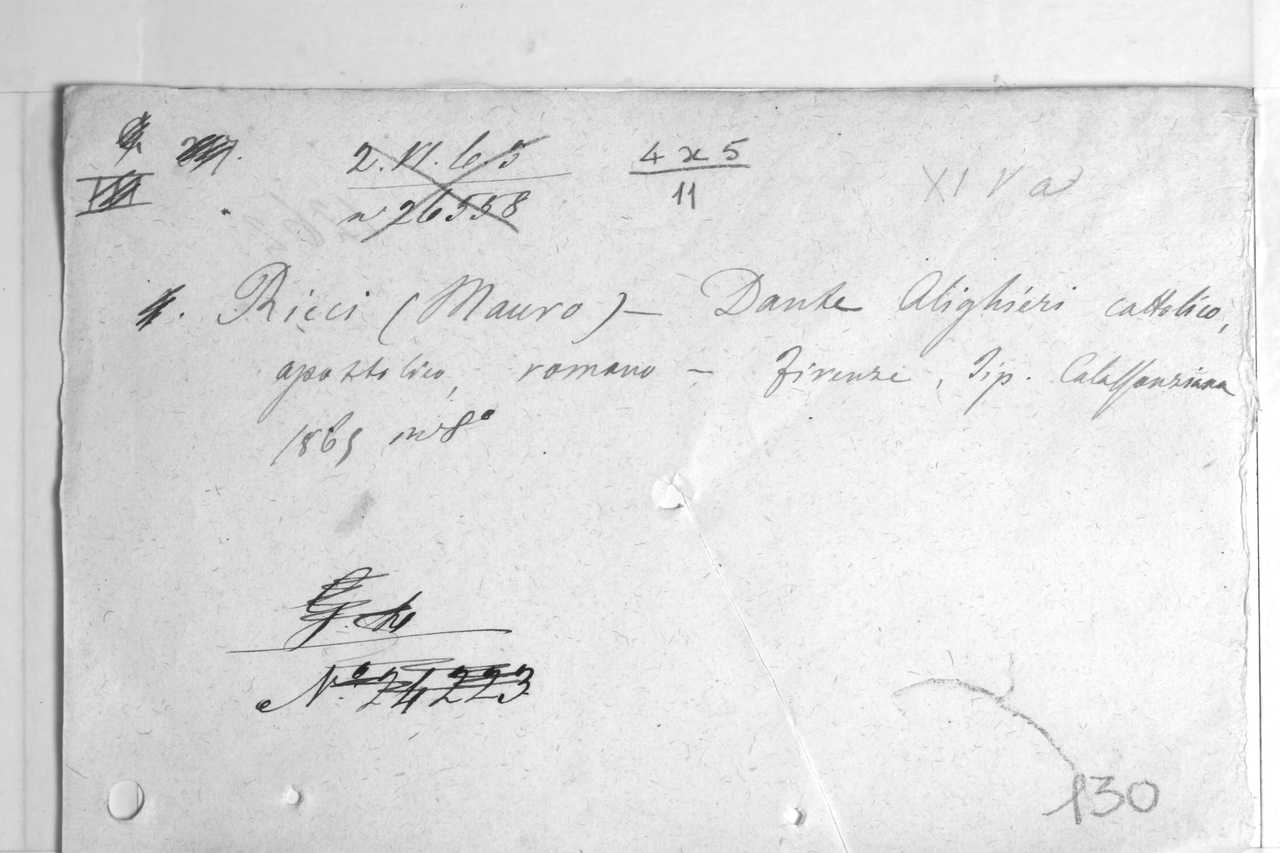 2. VI. 65 4 x 5 XIV a
nº 26558 11
Ricci (Mauro) — Dante Alighieri cattolico,
apostolico, romano — Firenze, Tip. Calassanziana
1865 in 8º
Nº 24223
130